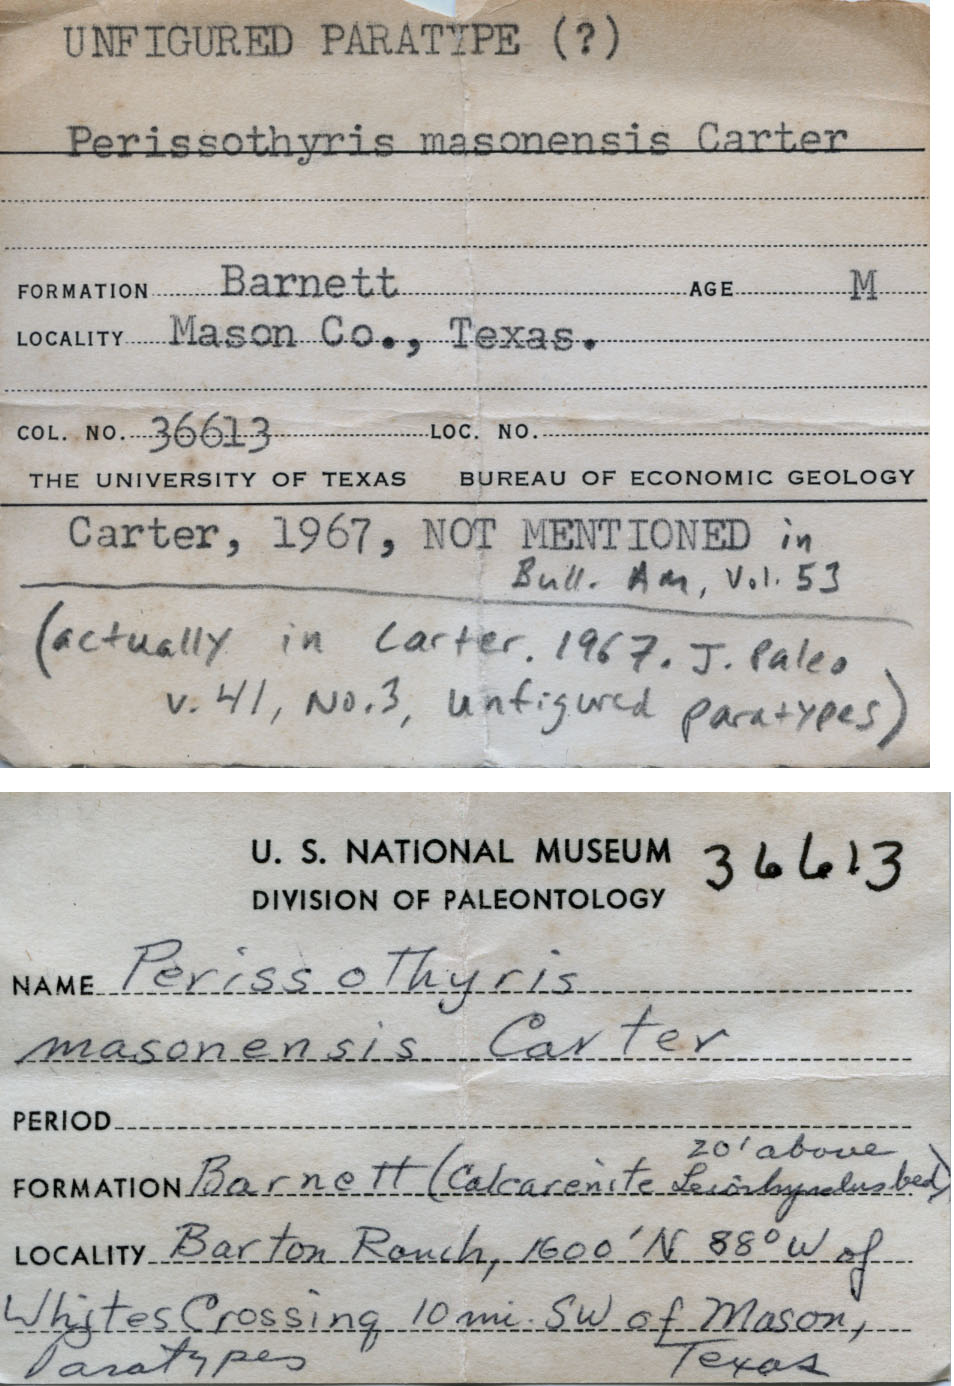 UNFIGURED PARATYPE (?)
Perissothyris masonensis Carter
FORMATION Barnett AGE M
LOCALITY Mason Co., Texas.
COL. NO. 36613 LOC. NO.
THE UNIVERSITY OF TEXAS BUREAU OF ECONOMIC GEOLOGY
Carter, 1967, NOT MENTIONED in
Bull. Am, Vol. 53
(actually in Carter. 1967. J. Paleo
v. 41, No. 3, unfigured paratypes)
U. S. NATIONAL MUSEUM 36613
DIVISION OF PALEONTOLOGY
NAME Perissothyris
masonensis Carter
PERIOD
20' above
FORMATION Barnett (Calcarenite Leiorhynchus bed)
LOCALITY Barton Ranch, 1600' N 88° W of
Whites Crossing 10 mi. SW of Mason,
Paratypes Texas